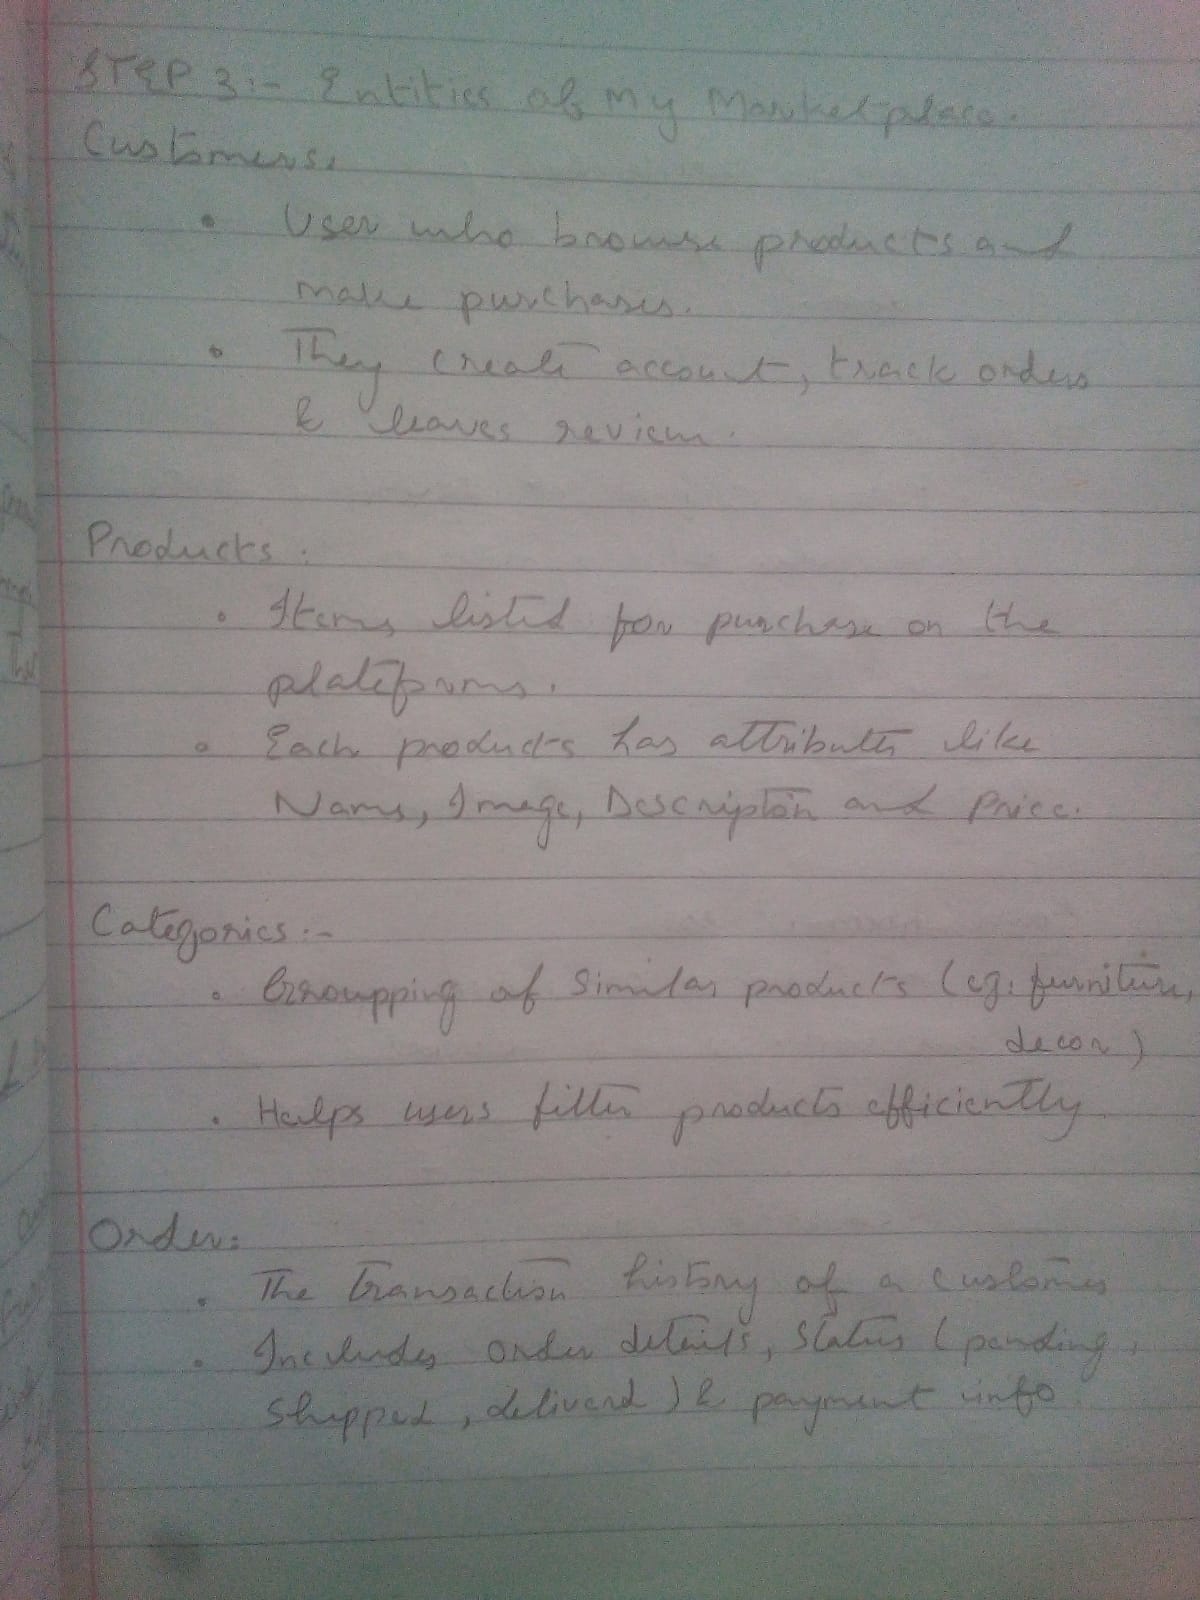 STEP 3:- Entities of My Marketplace.
Customers:
• User who browse products and
make purchases.
• They create account, track orders
& leaves review.
Products:
• Items listed for purchase on the
plateforms.
• Each products has attributes like
Name, Image, Description and Price.
Categories:-
• Groupping of Similar products (eg: furniture,
decor)
• Helps users filter products efficiently
Order:
• The transaction history of a customer
• Includes order details, status (pending,
shipped, deliverd) & payment info.